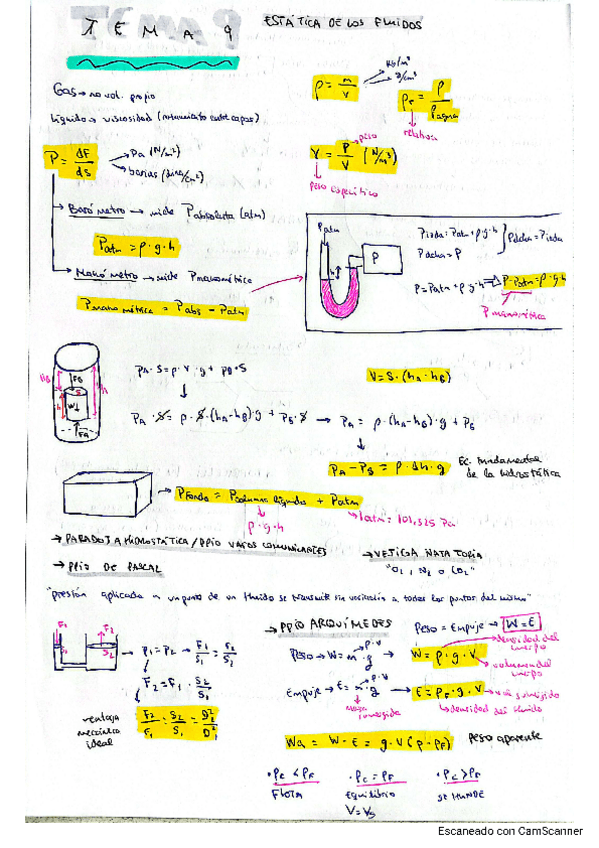 TEMA 9
ESTÁTICA DE LOS FLUIDOS
Gas → no vol. propio
Líquido → viscosidad (rozamiento entre capas)
ρ = m/V
kg/m³
g/cm³
ρr = ρ/ρagua
relativa
P = dF/ds
Pa (N/m²)
barias (dina/cm²)
γ = P/V (N/m³)
peso
peso específico
→ Barómetro → mide Pabsoluta (atm)
Patm = ρ·g·h
→ Manómetro → mide Pmanométrica
Pmanométrica = Pabs - Patm
Patm
P
h
Pizda = Patm + ρ·g·h
Pdcha = P
Pdcha = Pizda
P = Patm + ρ·g·h → P-Patm = ρ·g·h
Pmanométrica
PA·S = ρ·V·g + PB·S
V = S·(hA-hB)
PA·S = ρ·S·(hA-hB)·g + PB·S → PA = ρ·(hA-hB)·g + PB
PA - PB = ρ·Δh·g
Ec. fundamental de la hidrostática
→ Pfondo = Pcolumna líquido + Patm
ρ·g·h
1atm = 101,325 Pa
→ PARADOJA HIDROSTÁTICA / PPIO VASOS COMUNICANTES
→ VEJIGA NATATORIA
"O2, N2 o CO2"
→ PPIO DE PASCAL
"presión aplicada a un punto de un fluido se transmite sin variación a todos los puntos del mismo"
F1
F2
S1
S2
→ P1 = P2 → F1/S1 = F2/S2
F2 = F1 · S2/S1
ventaja mecánica ideal
F2/F1 = S2/S1 = D²/D²
→ PPIO ARQUÍMEDES
Peso = Empuje → W = E
Peso → W = m·g
ρ·V
→ W = ρ·g·V
densidad del cuerpo
volumen del cuerpo
Empuje → E = m·g
ρ·V
masa sumergida
→ E = ρF·g·V
vol sumergido
densidad del fluido
Wa = W - E = g·V(ρ - ρF)
Peso aparente
· ρc < ρF
FLOTA
· ρc = ρF
Equilibrio
V = Vs
· ρc > ρF
SE HUNDE
Escaneado con CamScanner